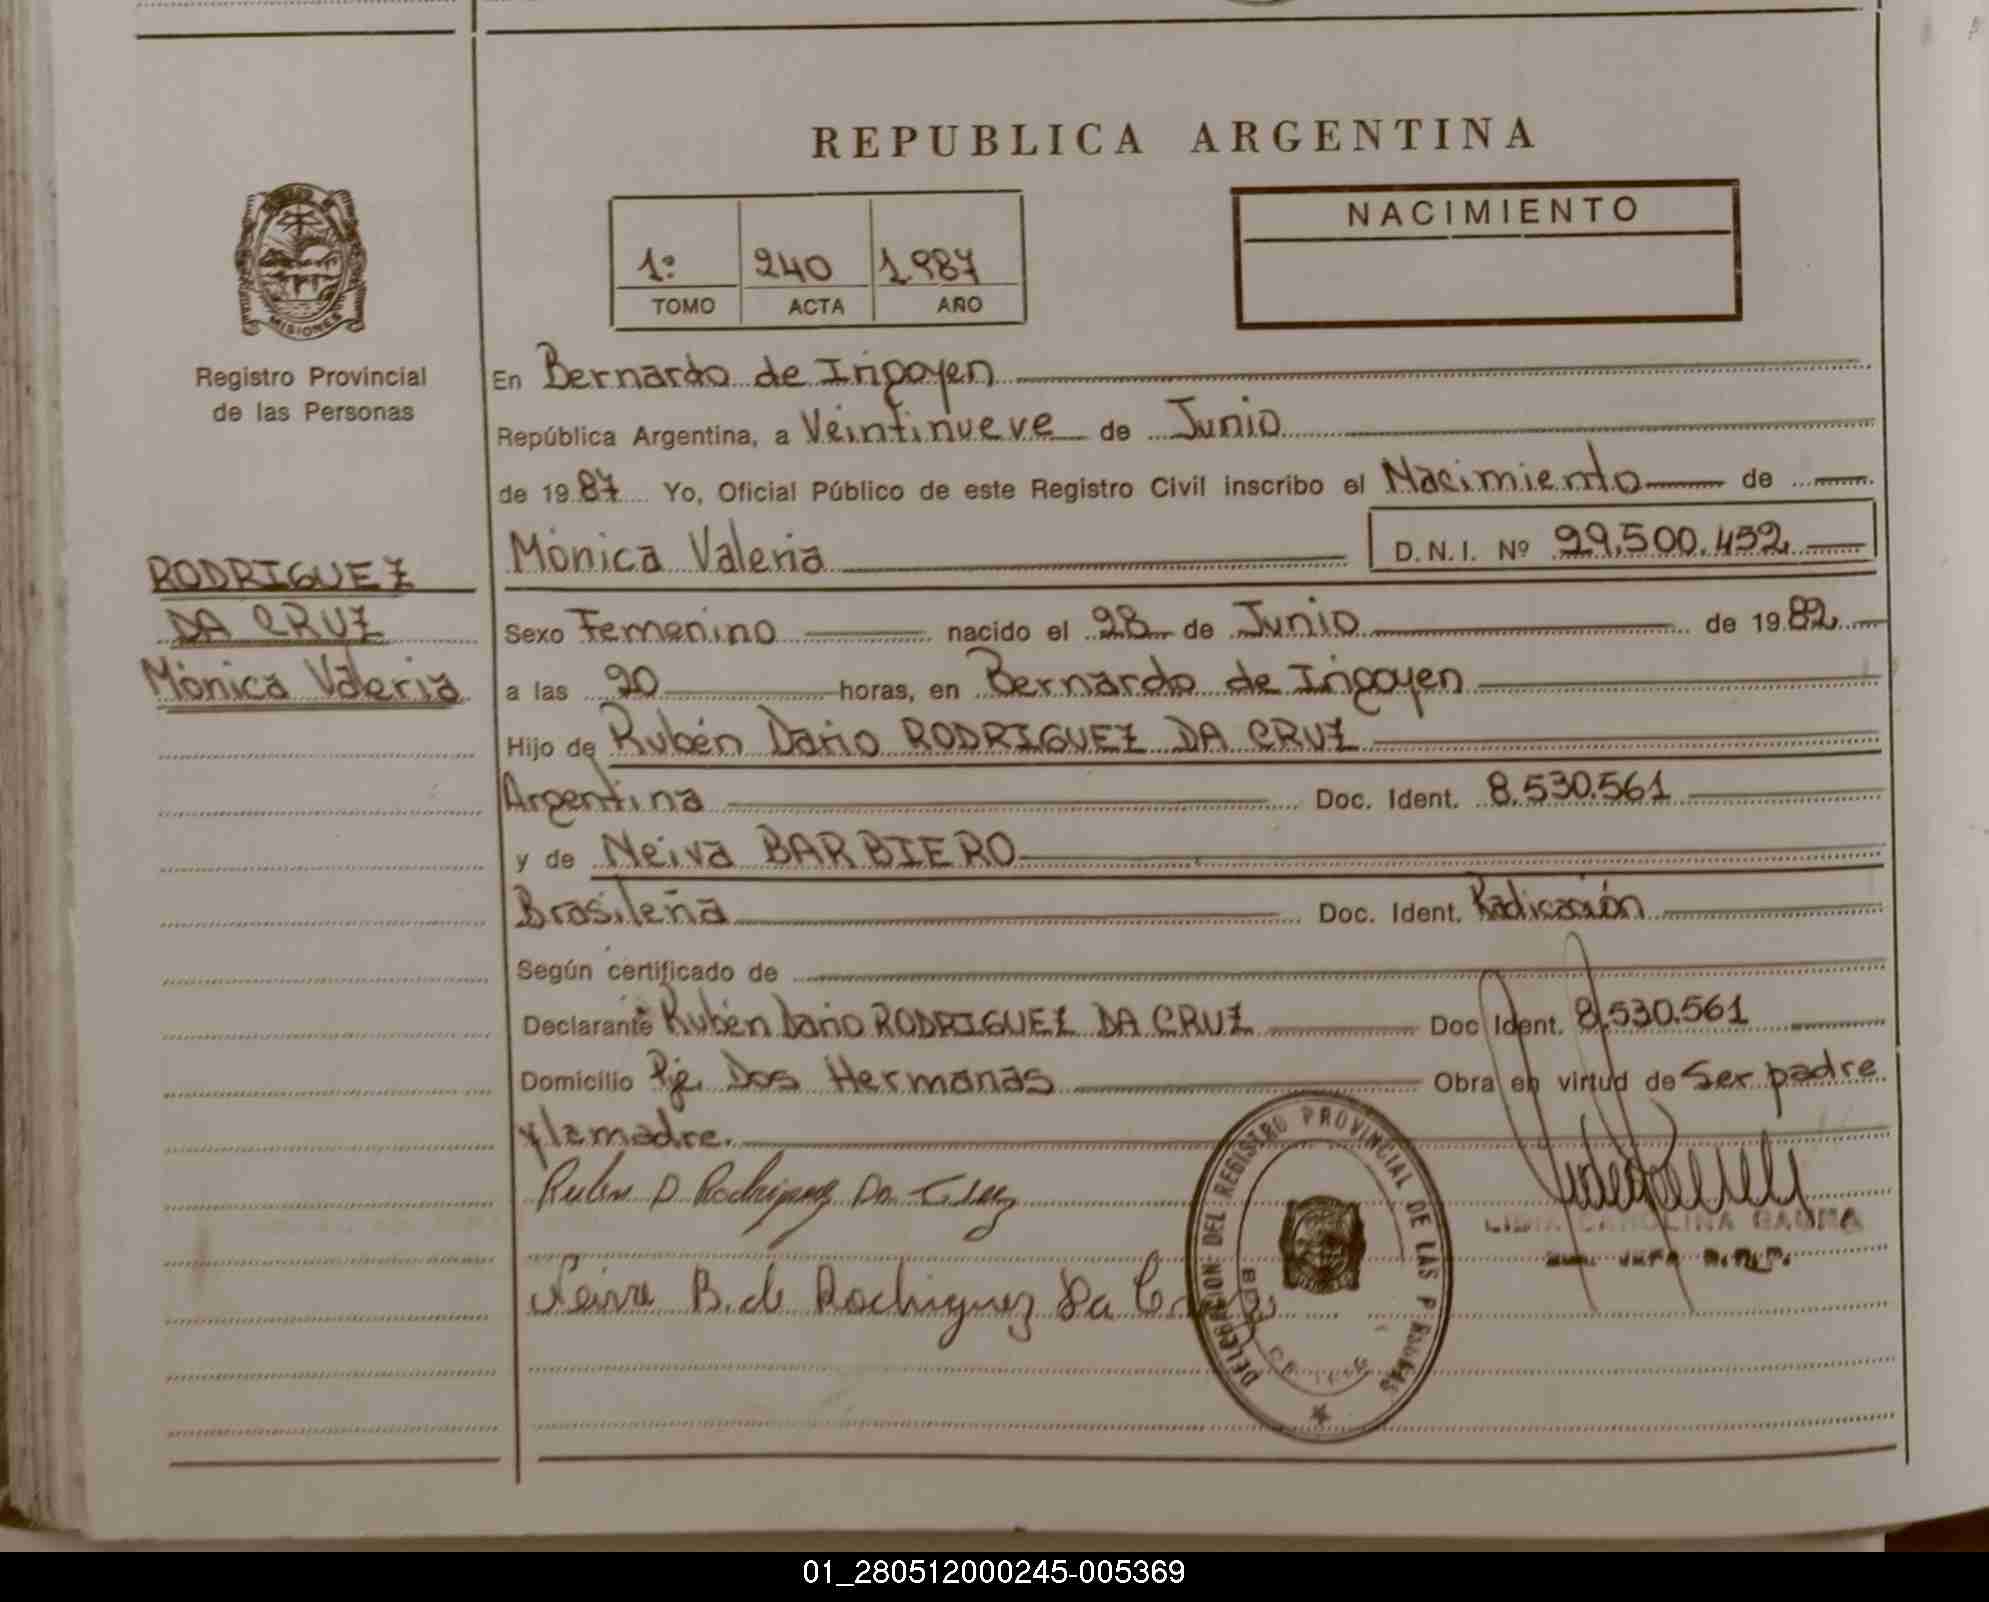 REPUBLICA ARGENTINA
1º 240 1987
TOMO ACTA AÑO
NACIMIENTO
MISIONES
Registro Provincial
de las Personas
RODRIGUEZ
DA CRUZ
Mónica Valeria
En Bernardo de Irigoyen
República Argentina, a Veintinueve de Junio
de 1987 Yo, Oficial Público de este Registro Civil inscribo el Nacimiento de
Mónica Valeria D.N.I. Nº 29.500.452
Sexo Femenino nacido el 28 de Junio de 1982
a las 20 horas, en Bernardo de Irigoyen
Hijo de Rubén Darío RODRIGUEZ DA CRUZ
Argentina Doc. Ident. 8.530.561
y de Neiva BARBIERO
Brasileña Doc. Ident. Radicación
Según certificado de
Declarante Rubén Darío RODRIGUEZ DA CRUZ Doc Ident. 8.530.561
Domicilio Pje. Dos Hermanas Obra en virtud de Ser padre
y la madre.
Ruben D Rodriguez Da Cruz
Neiva B. de Rodriguez Da Cruz
DELEGACION DEL REGISTRO PROVINCIAL DE LAS P
LIDIA CAROLINA
01_280512000245-005369